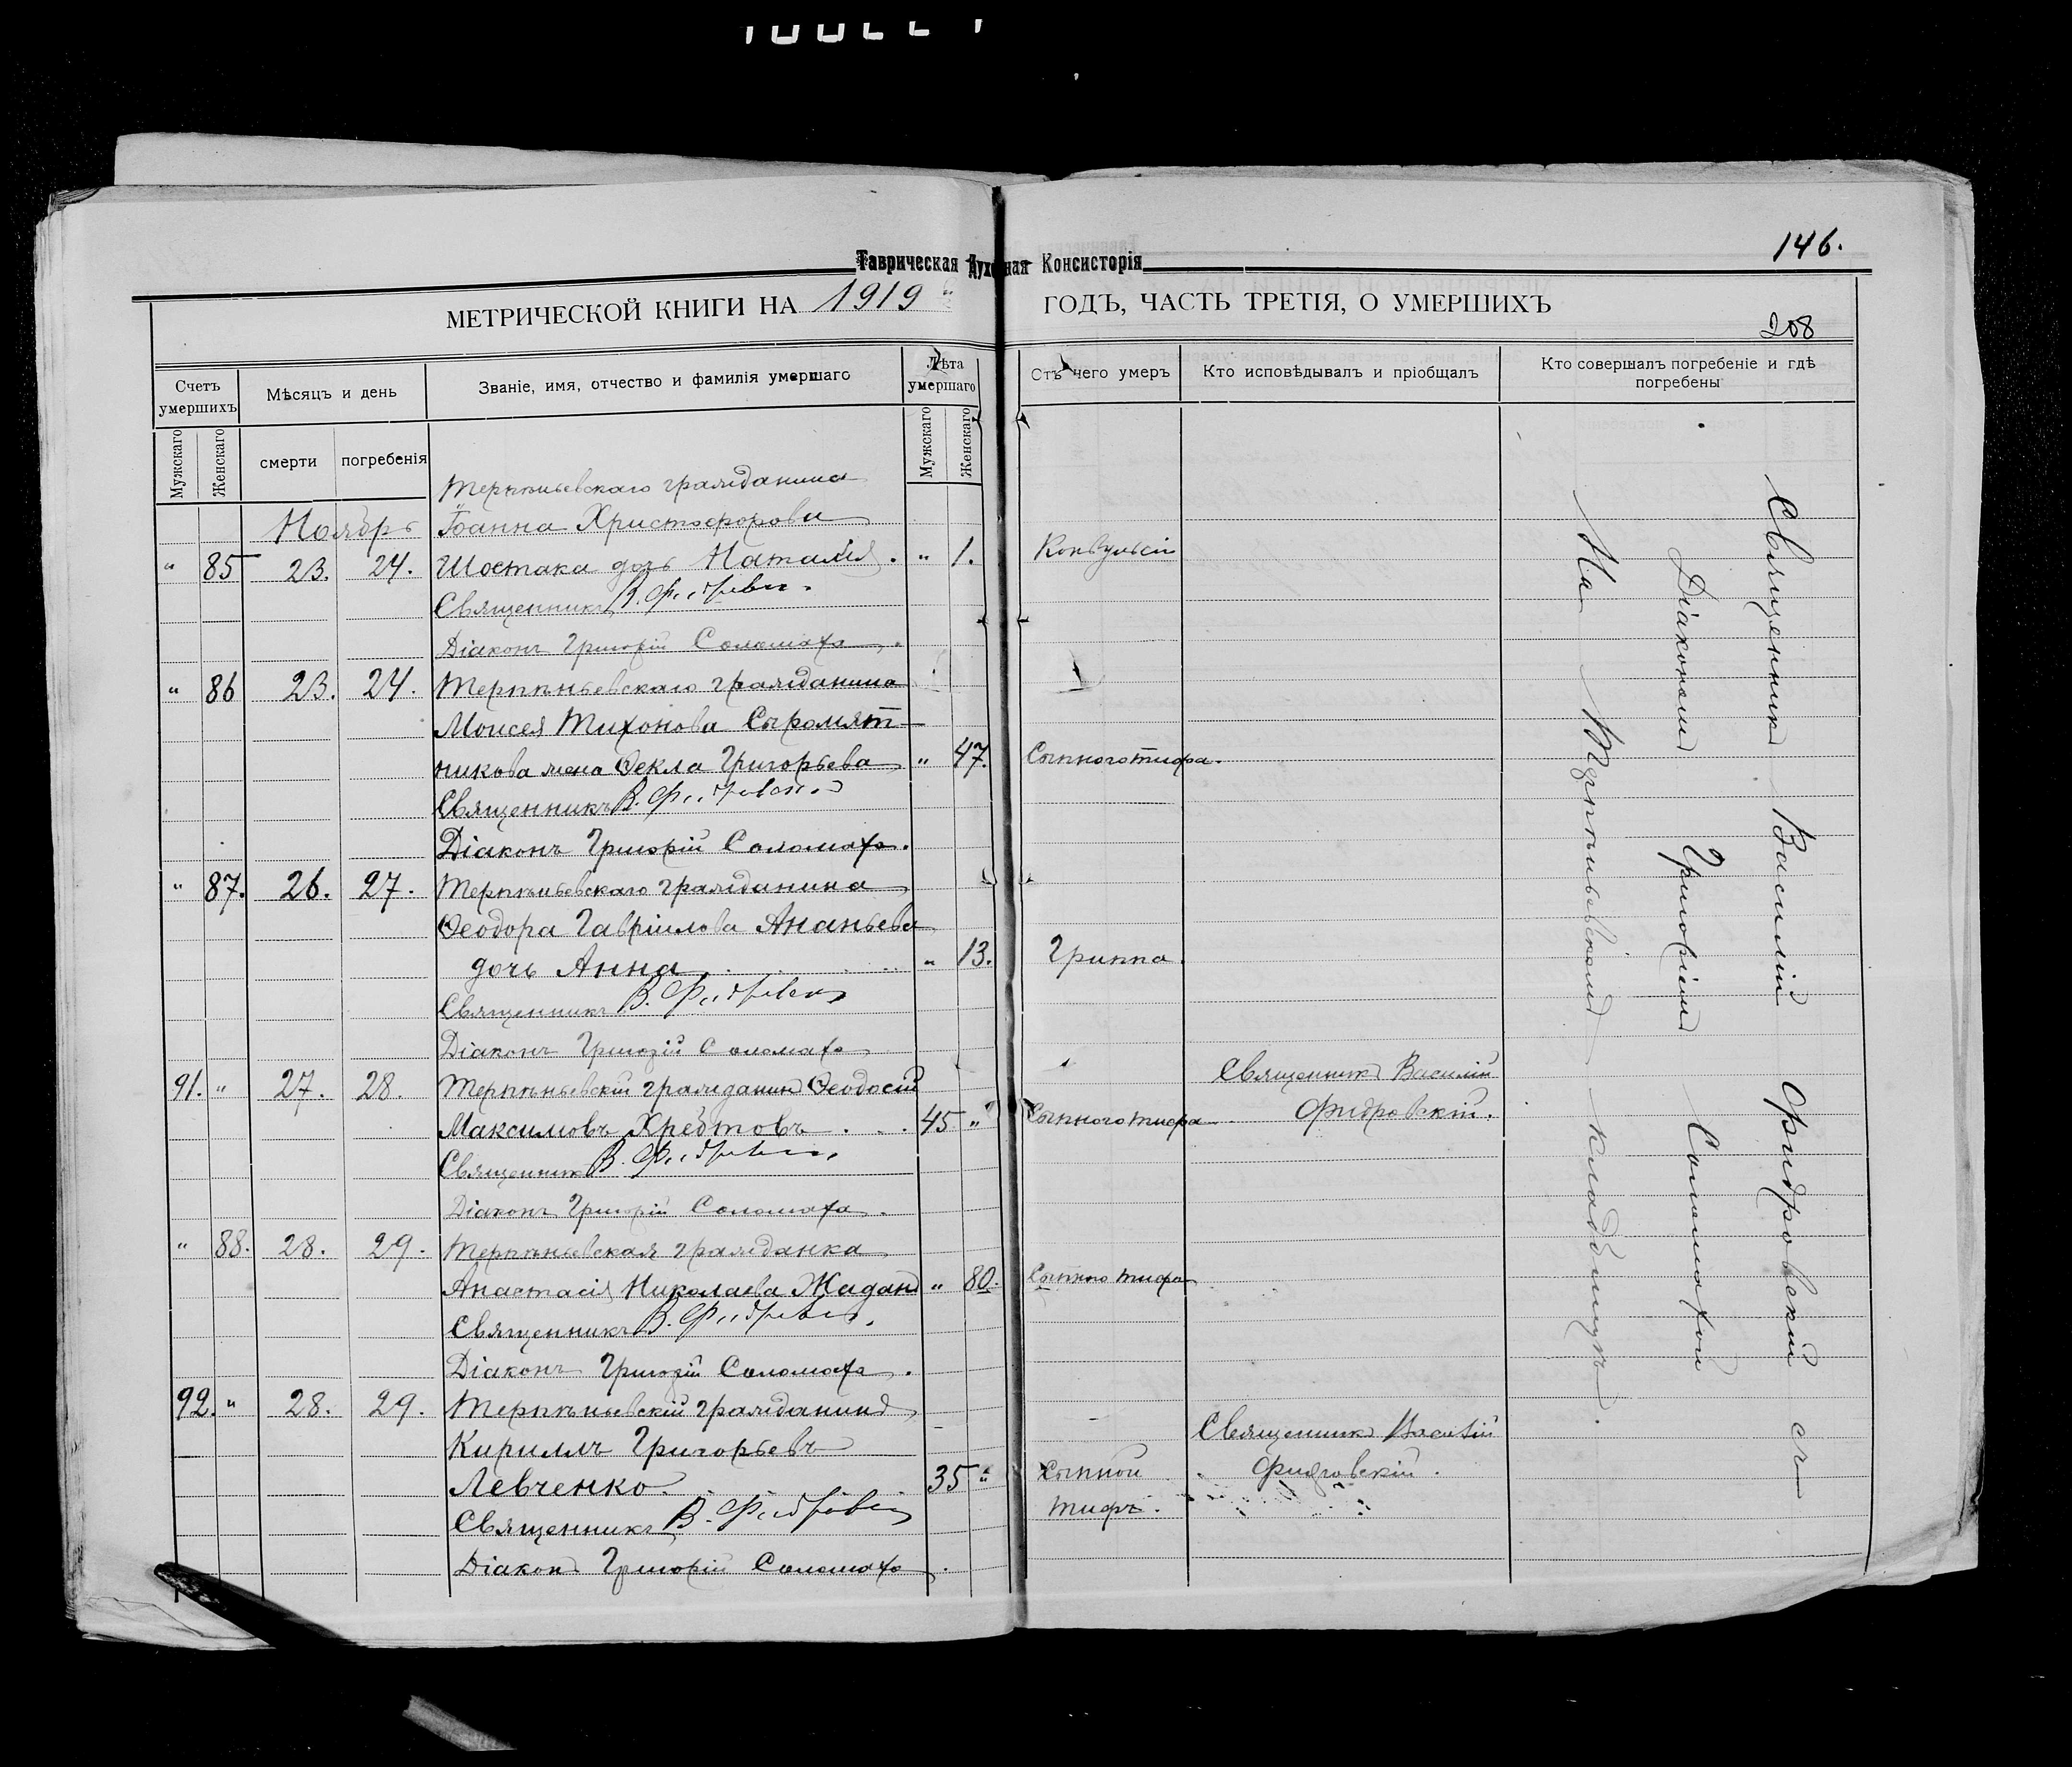 146.
Таврическая Духовная Консисторія
МЕТРИЧЕСКОЙ КНИГИ НА 1919 ГОДЪ, ЧАСТЬ ТРЕТІЯ, О УМЕРШИХЪ
208
Счетъ умершихъ
Мѣсяцъ и день
Званіе, имя, отчество и фамилія умершаго
Лѣта умершаго
Отъ чего умеръ
Кто исповѣдывалъ и пріобщалъ
Кто совершалъ погребеніе и гдѣ погребены
Мужскаго
Женскаго
смерти
погребенія
Мужскаго
Женскаго
Терпѣньевскаго гражданина
Ноябрь Іоанна Христофорова
" 85 23. 24. Шостака дочь Наталія. " 1. Конвульсіи
Священникъ
Діаконъ Григорій Соломаха.
" 86 23. 24. Терпѣньевскаго гражданина
Моисея Тихонова Сыромят-
никова жена Ѳекла Григорьева " 47. Сыпного тифа.
Священникъ
Діаконъ Григорій Соломаха.
" 87. 26. 27. Терпѣньевскаго гражданина
Ѳеодора Гавріилова Ананьева
дочь Анна " 13. Гриппа.
Священникъ
Діаконъ Григорій Соломаха
91. " 27. 28. Терпѣньевскій гражданинъ Ѳеодосій Священникъ Василій
Максимовъ Хребтовъ 45 " Сыпного тифа Фидровскій.
Священникъ
Діаконъ Григорій Соломаха.
" 88. 28. 29. Терпѣньевская гражданка
Анастасія Николаева Жадан " 80. Сыпного тифа
Священникъ
Діаконъ Григорій Соломаха.
92. " 28. 29. Терпѣньевскій гражданинъ
Кириллъ Григорьевъ Священникъ Василій
Левченко. 35 " Сыпной Фидровскій.
Священникъ тифъ.
Діаконъ Григорій Соломаха.
Священникъ Василій Фидровскій съ
Діакономъ Григоріемъ Соломахой
На Терпѣньевскомъ кладбищѣ.